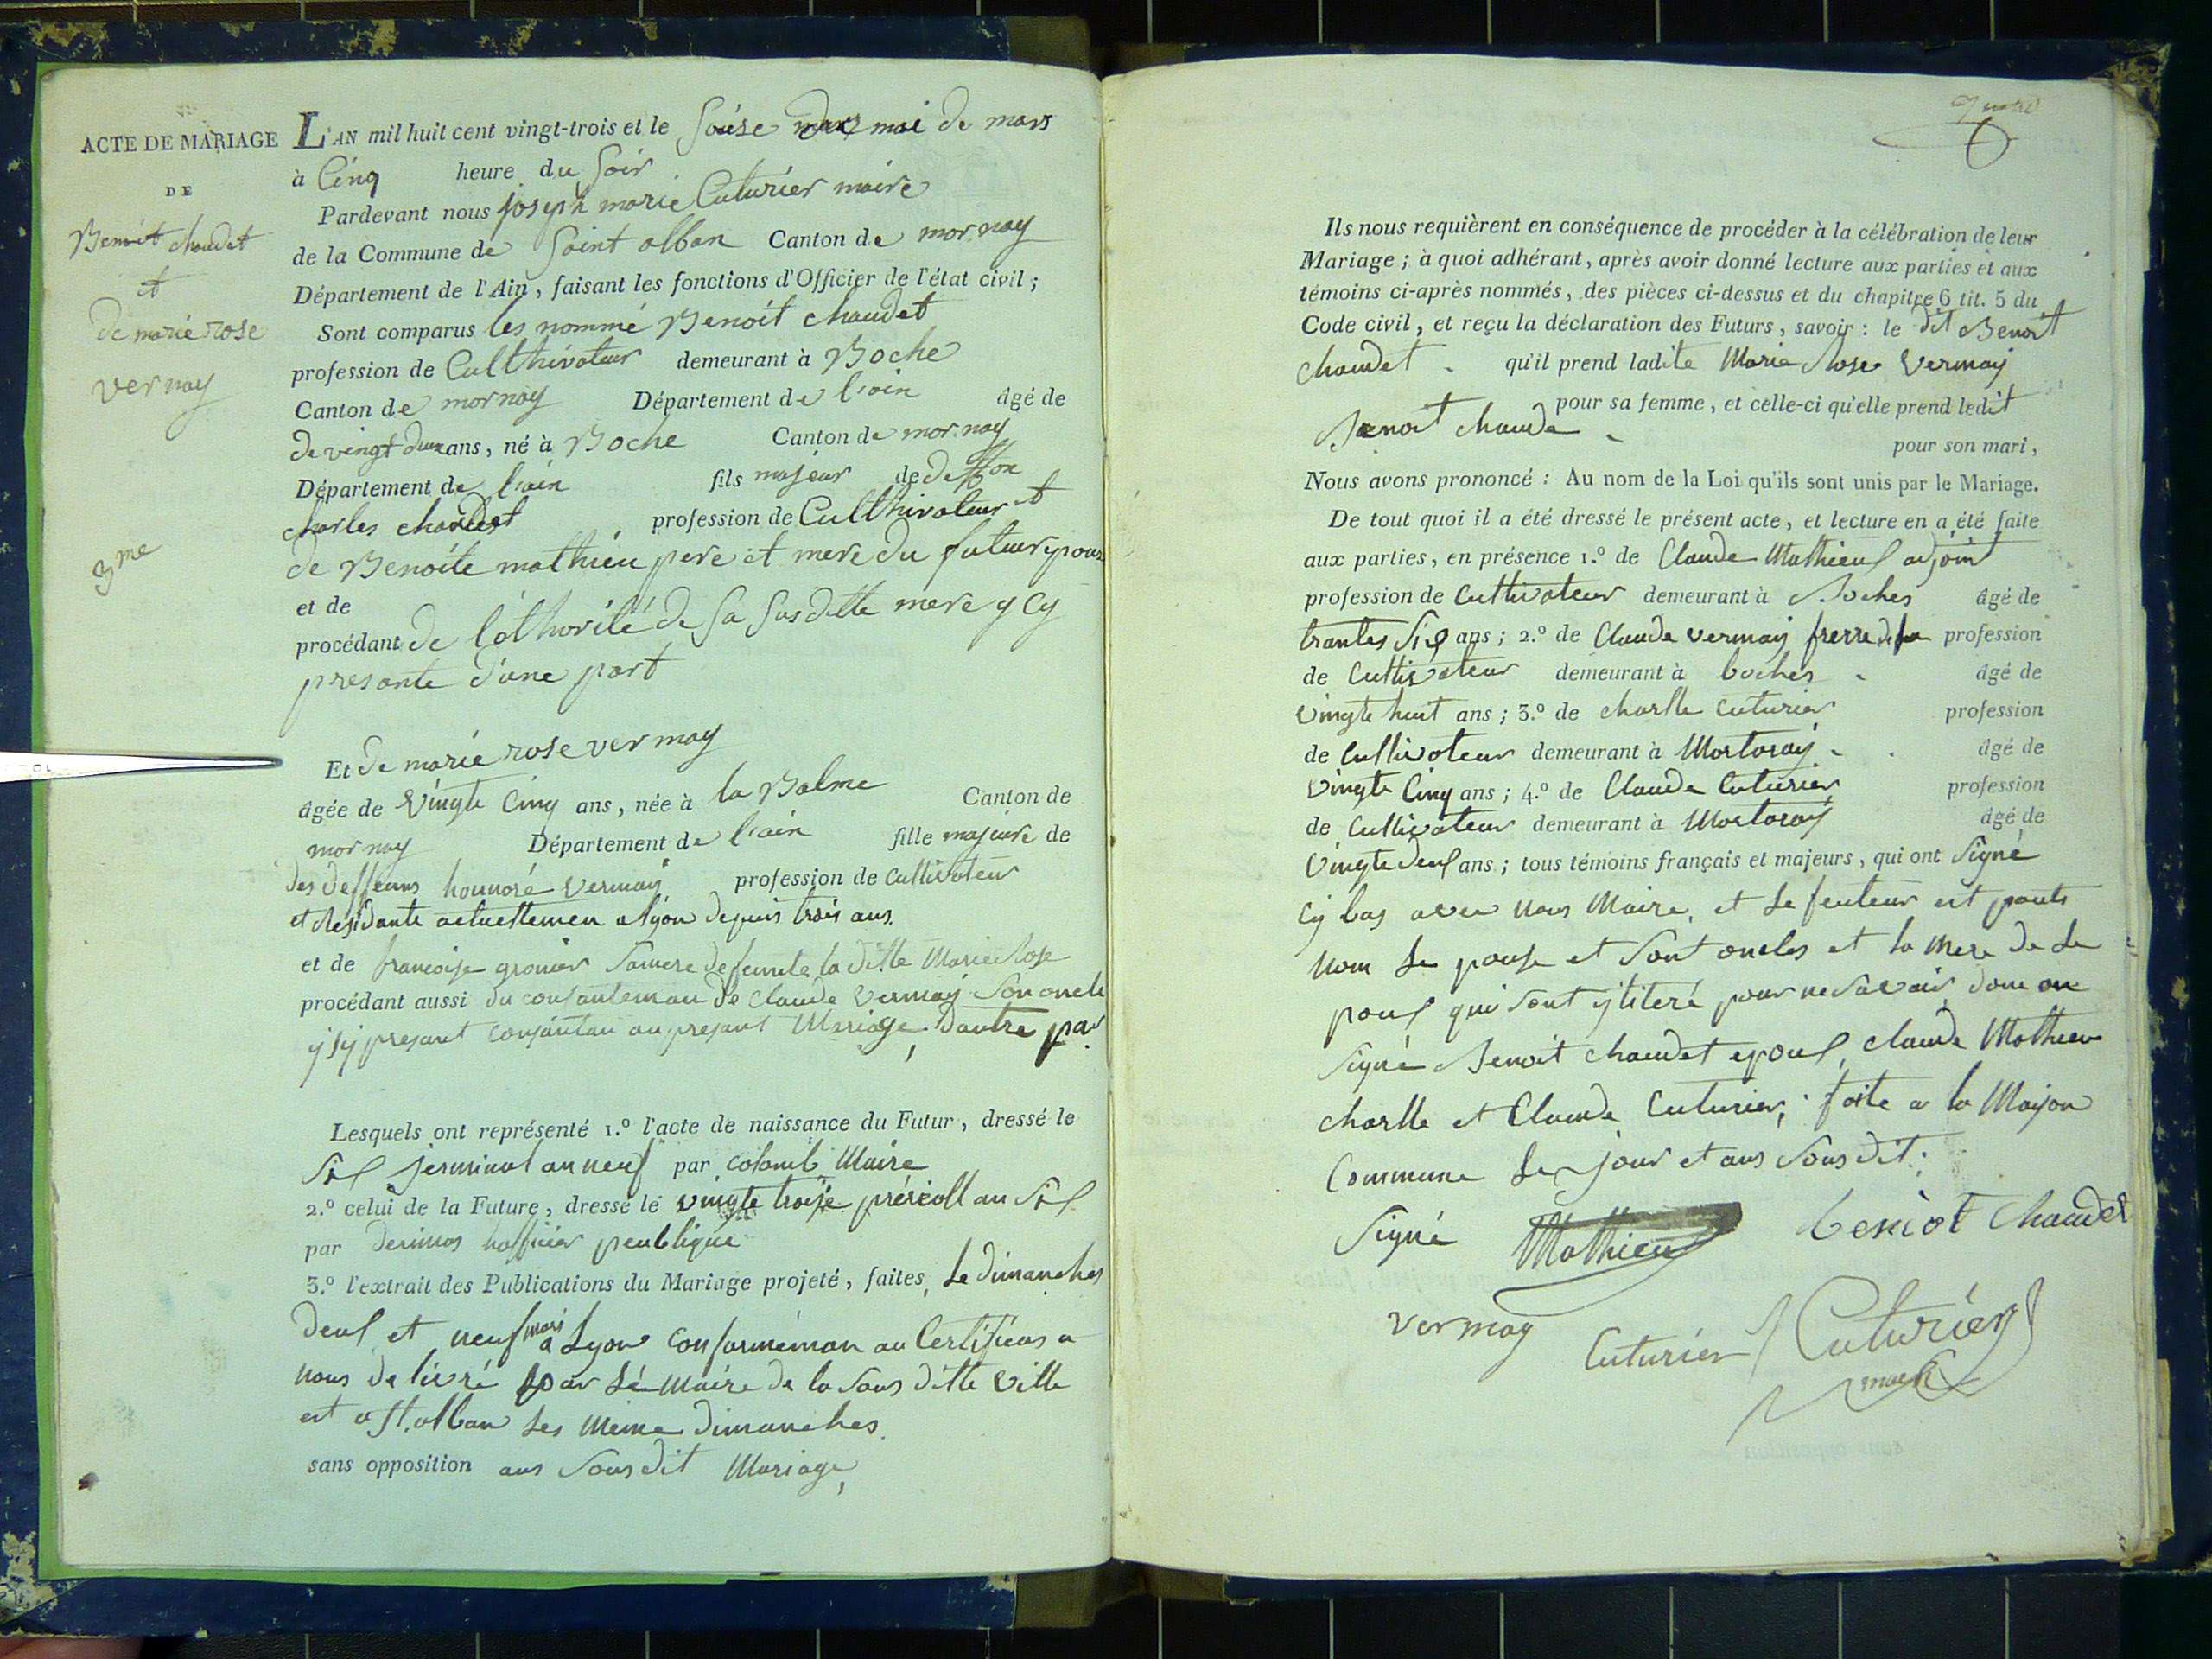 ACTE DE MARIAGE
DE
Benoit chaudet
et
de marie rose
vernay
3me
L'AN mil huit cent vingt-trois et le saise mai de mars
à Cinq heure du soir
Pardevant nous joseph marie Cuturier maire
de la Commune de saint alban Canton de mornay
Département de l'Ain, faisant les fonctions d'Officier de l'état civil;
Sont comparus les nommé Benoit chaudet
profession de Cullthivateur demeurant à Boche
Canton de mornay Département de l'ain âgé de
de vingt deux ans, né à Boche Canton de mornay
Département de l'ain fils majeur de deffon
charles chaudet profession de Cullthivateur et
de Benoite mathieu pere et mere du futur epoux
et de
procédant de l'othorité de sa susditte mere y cy
presante d'une part
Et de marie rose vernay
âgée de vingte cinq ans, née à la Balme Canton de
mornay Département de l'ain fille majeure de
des deffeuns honnoré vernay profession de cultivateur
et residante actuellemen a lyon depuis trois ans.
et de francoise gronier samere defeunte la ditte Marie Rose
procédant aussi du consanteman de Claude Vernay son oncle
y sy presant consantan au presant Mariage, dautre par.
Lesquels ont représenté 1.º l'acte de naissance du Futur, dressé le
six jerminal an neuf par colomb Maire
2.º celui de la Future, dressé le vingte troise prérioll an six
par hofficier peublique
3.º l'extrait des Publications du Mariage projeté, faites, le dimanches
deux et neuf mars a Lyon conformeman au Certificas a
nous delivré par le Maire de la sous ditte ville
et a st. alban les même dimanches.
sans opposition aus sousdit Mariage,
Ils nous requièrent en conséquence de procéder à la célébration de leur
Mariage; à quoi adhérant, après avoir donné lecture aux parties et aux
témoins ci-après nommés, des pièces ci-dessus et du chapitre 6 tit. 5 du
Code civil, et reçu la déclaration des Futurs, savoir: le dit Benoit
chaudet. qu'il prend ladite Marie Rose Vernay
pour sa femme, et celle-ci qu'elle prend ledit
Benoit chaude. pour son mari,
Nous avons prononcé: Au nom de la Loi qu'ils sont unis par le Mariage.
De tout quoi il a été dressé le présent acte, et lecture en a été faite
aux parties, en présence 1.º de Claude Mathieu adjoint
profession de cultivateur demeurant à Boches âgé de
trantes six ans; 2.º de Claude vernay frerre de la profession
de Cultivateur demeurant à boches. âgé de
vingte huit ans; 3.º de charlle cuturier profession
de Cultivateur demeurant à Mortaray. âgé de
vingte Cinq ans; 4.º de Claude Cuturier profession
de Cultivateur demeurant à Mortaray âgé de
vingte deux ans; tous témoins français et majeurs, qui ont signé
cy bas avec nous Maire, et le feuteur et pouts
nom le pouse et sont oncles et la mere de le
poux qui sont ylliteré pour ne savair, dom on
signé Benoit chaudet epoux, claude Mathieu
charlle et Claude Cuturier; faite a la Maison
Commune le jour et ans sousdit.
Signé Mathieu beniot chaudet
vernay Cuturier Cuturier
maire